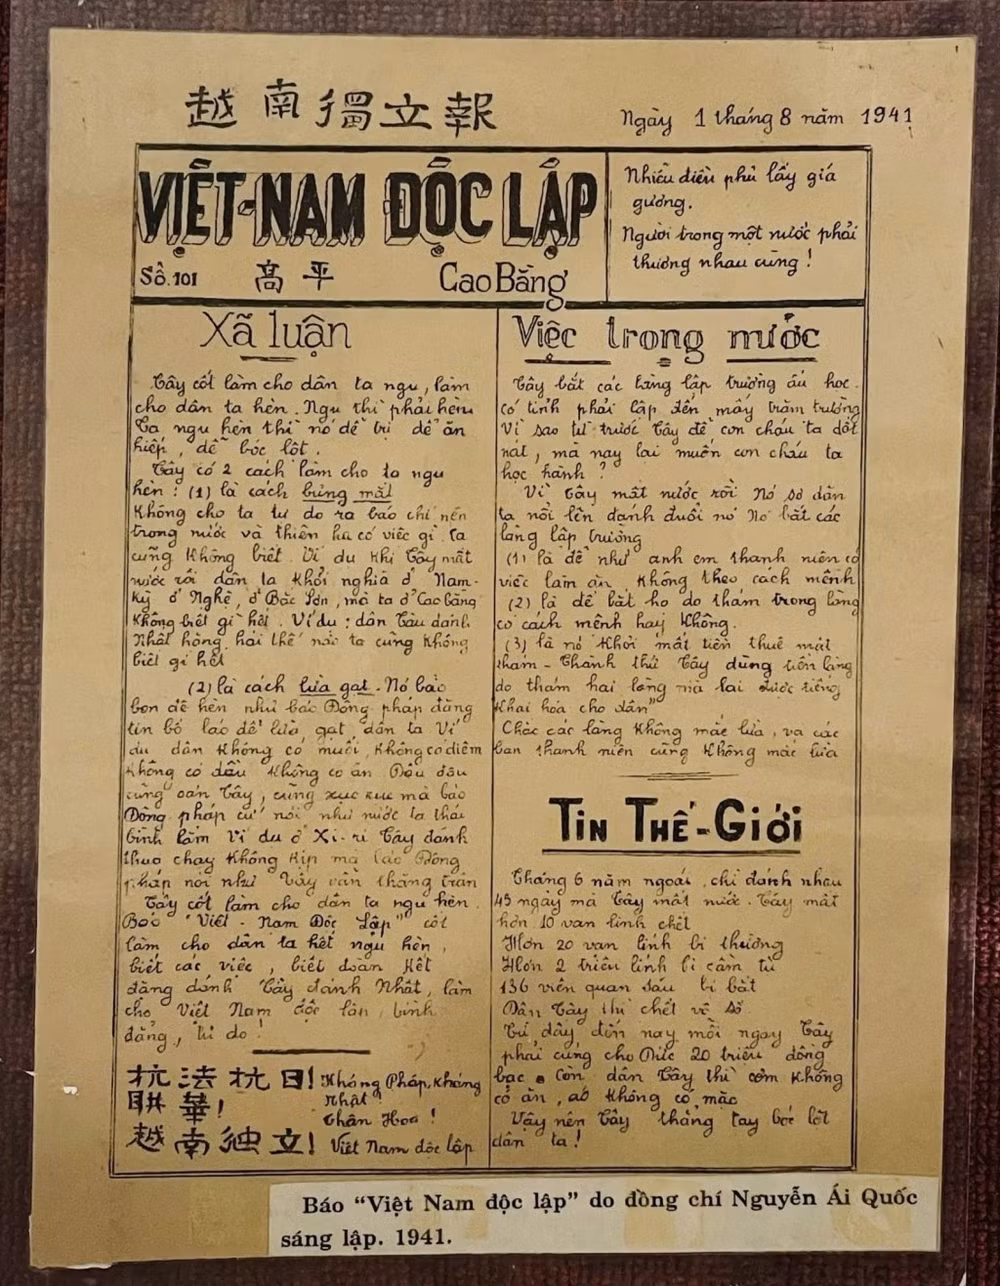 越南獨立報
Ngày 1 tháng 8 năm 1941
VIỆT-NAM ĐỘC LẬP
Số.101 高平 Cao Bằng
Nhiễu điều phủ lấy giá
gương.
Người trong một nước phải
thương nhau cùng!
Xã luận
Tây cốt làm cho dân ta ngu, làm
cho dân ta hèn. Ngu thì phải hèn
Ta ngu hèn thì nó dễ trị dễ ăn
hiếp, dễ bóc lột.
Tây có 2 cách làm cho ta ngu
hèn: (1) là cách bưng mắt
Không cho ta tự do ra báo chí nên
trong nước và thiên hạ có việc gì ta
cũng không biết. Ví dụ khi Tây mất
nước rồi dân ta khởi nghĩa ở Nam-
Kỳ ở Nghệ, ở Bắc Sơn, mà ta ở Cao bằng
không biết gì hết. Ví dụ: dân Tàu đánh
Nhật hòng hải thế nào ta cũng không
biết gì hết
(2) là cách lừa gạt. Nó bảo
bọn đê hèn như báo Đông pháp đăng
tin bố láo để lừa gạt dân ta Ví
dụ dân không có muối, không có diêm
không có dầu không có ăn Đâu đâu
cũng oán Tây, cũng xục xục mà báo
Đông pháp cứ nói như nước ta thái
bình lắm Ví dụ ở Xi-ri Tây đánh
thua chạy không kịp mà báo Đông
pháp nói như Tây vẫn thắng trận
Tây cốt làm cho dân ta ngu hèn.
Báo "Việt-Nam Độc Lập" cốt
làm cho dân ta hết ngu hèn,
biết các việc, biết đoàn kết
đặng đánh Tây đánh Nhật, làm
cho Việt Nam độc lập, bình
đẳng, tự do!
抗法抗日! Kháng Pháp, kháng
Nhật!
聯華! Thân Hoa!
越南独立! Việt Nam độc lập
Việc trong nước
Tây bắt các làng lập trường ấu học.
có tỉnh phải lập đến mấy trăm trường
Vì sao từ trước Tây để con cháu ta dốt
nát, mà nay lại muốn con cháu ta
học hành?
Vì Tây mất nước rồi Nó sợ dân
ta nổi lên đánh đuổi nó Nó bắt các
làng lập trường
(1) là để như anh em thanh niên có
việc làm ăn không theo cách mệnh
(2) là để bắt họ do thám trong làng
có cách mệnh hay không.
(3) là nó khỏi mất tiền thuê mật
thám - Thành thử Tây dùng tiền làng
do thám hai làng mà lại được tiếng
khai hóa cho dân"
Chắc các làng không mắc lừa, và các
bạn thanh niên cũng không mắc lừa
TIN THẾ-GIỚI
Tháng 6 năm ngoái, chỉ đánh nhau
45 ngày mà Tây mất nước. Tây mất
hơn 10 vạn lính chết
Hơn 20 vạn lính bị thương
Hơn 2 triệu lính bị cầm tù
136 viên quan sáu bị bắt
Dân Tây thì chết vô số
Từ đấy đến nay mỗi ngày Tây
phải cúng cho Đức 20 triệu đồng
bạc. Còn dân Tây thì cơm không
có ăn, áo không có mặc
Vậy nên Tây thẳng tay bóc lột
dân ta!
Báo "Việt Nam độc lập" do đồng chí Nguyễn Ái Quốc
sáng lập. 1941.